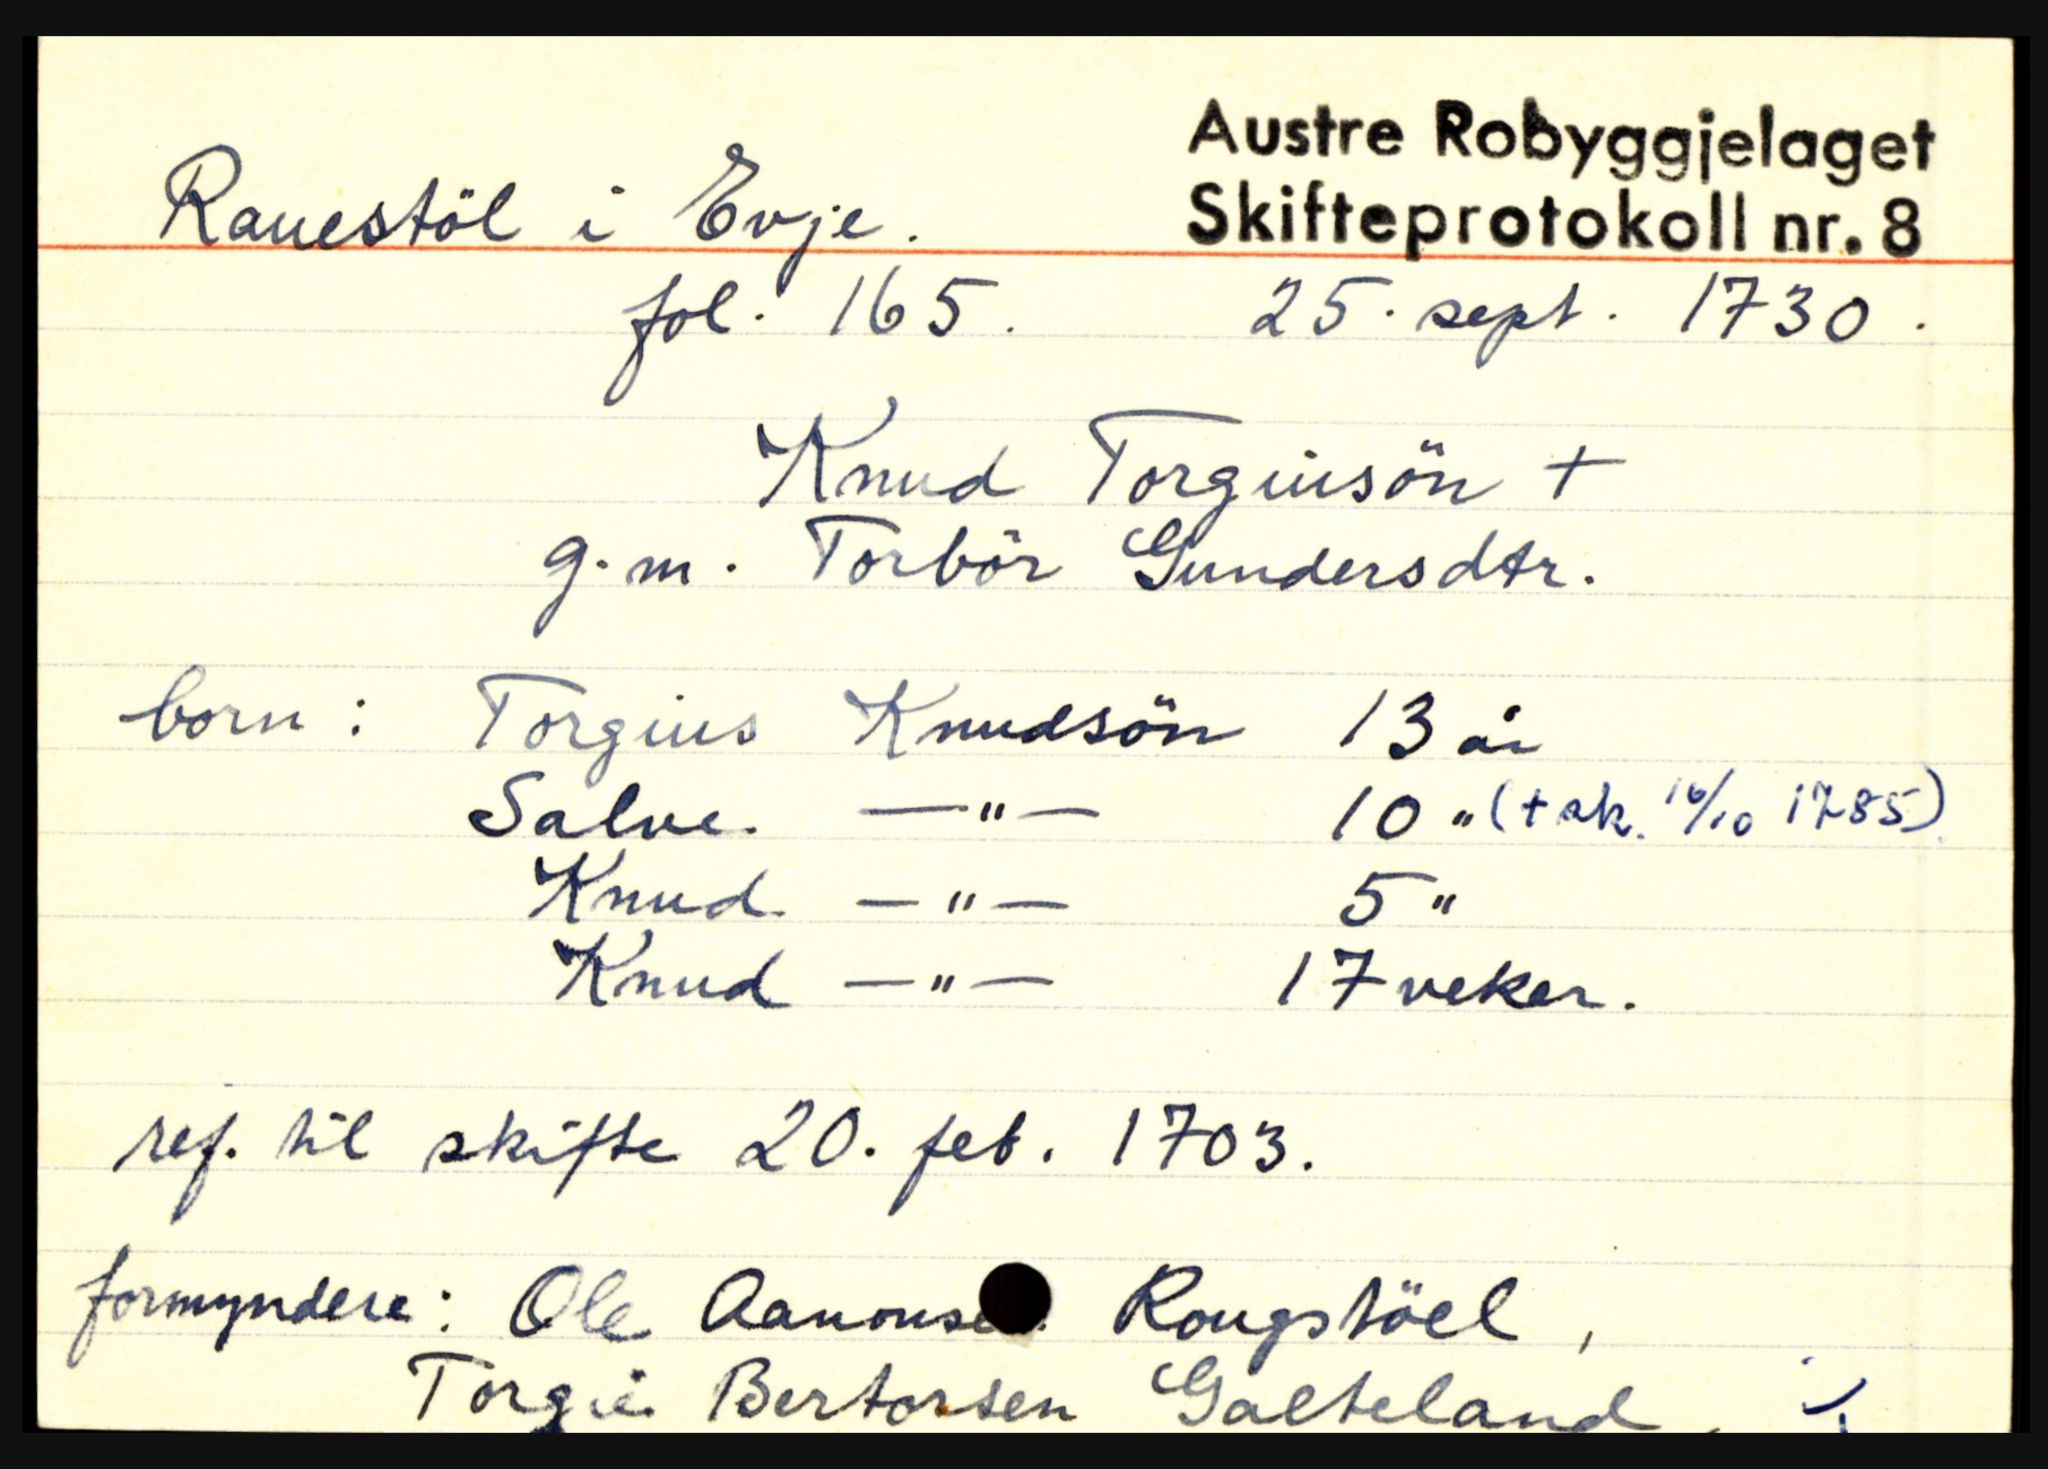 Austre Robyggjelaget
Rauestöl i Evje. Skifteprotokoll nr. 8
fol. 165. 25. sept. 1730.
Knud Torgiusön +
g.m. Torbör Gundersdtr.
born: Torgius Knudsön 13 år
Salve. —"— 10 " (+ sk. 16/10 1785)
Knud. —"— 5 "
Knud —"— 17 veker.
ref. til skifte 20. feb. 1703.
formyndere: Ole Aanonsen Rougstöel,
Torgie Bertorsen Galteland,